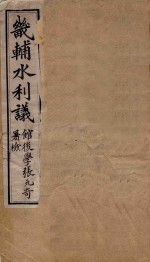 畿輔水利議
館後學張元奇
署檢